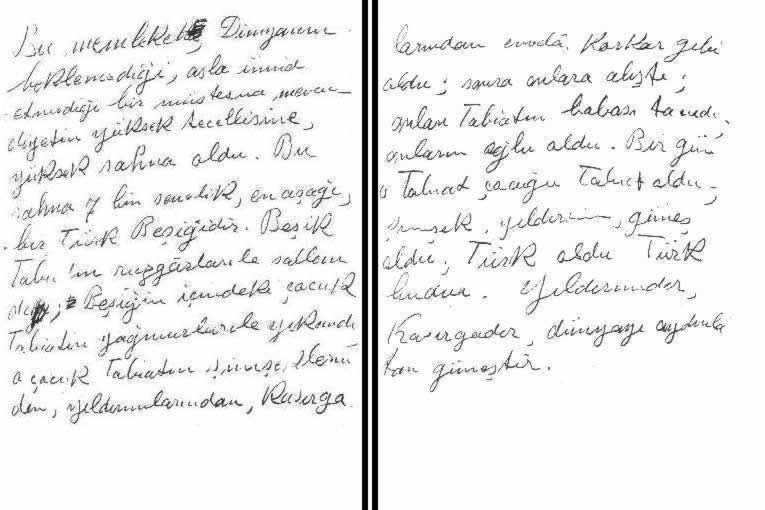 Bu memleket, Dünyanın
beklemediği, asla ümid
etmediği bir müstesna mevcu-
diyetin yüksek tecellisine,
yüksek sahna oldu. Bu
sahna 7 bin senelik, en aşağı,
bir Türk Beşiğidir. Beşik
Tabiatın rüzgârlarile sallan
dı; Beşiğin içindeki çocuk
Tabiatın yağmurlarile yıkandı
o çocuk Tabiatın şimşeklerin
den, yıldırımlarından, Kasırga
larından evvelâ, Korkar gibi
oldu; sonra onlara alıştı;
onları Tabiatın babası tanıdı,
onların oğlu oldu. Bir gün
o Tabiat çocuğu Tabiat oldu;
şimşek, yıldırım, güneş
oldu; Türk oldu. Türk
budur. Yıldırımdır,
Kasırgadır, dünyayı aydınla
tan güneştir.